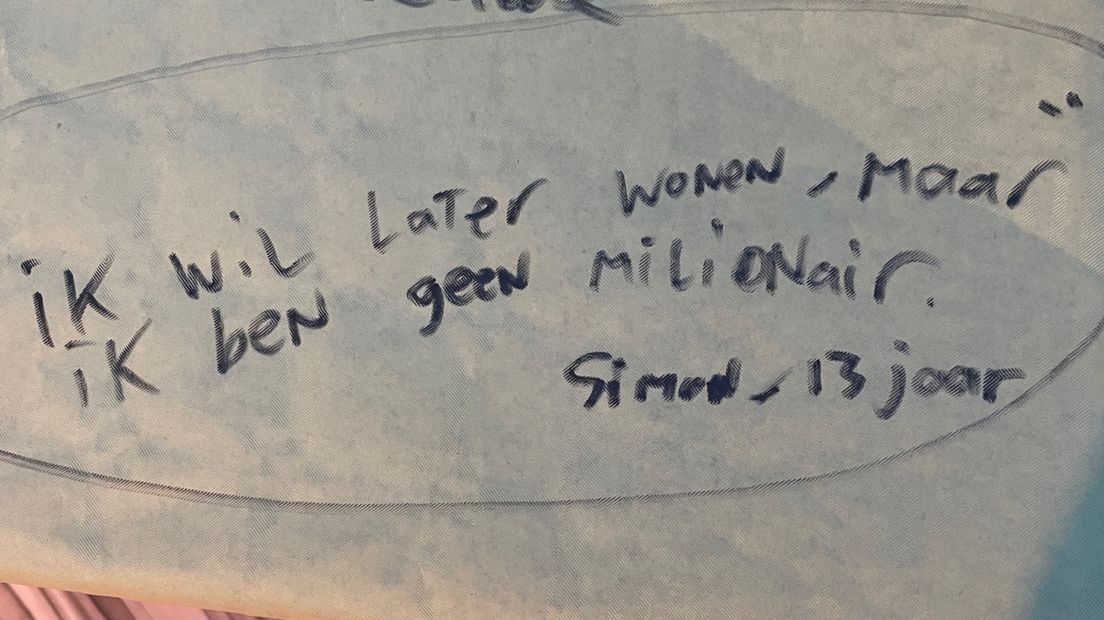 iK WiL Later WONEN, Maar
iK beN geen MiLiONair.
Simon, 13 jaar